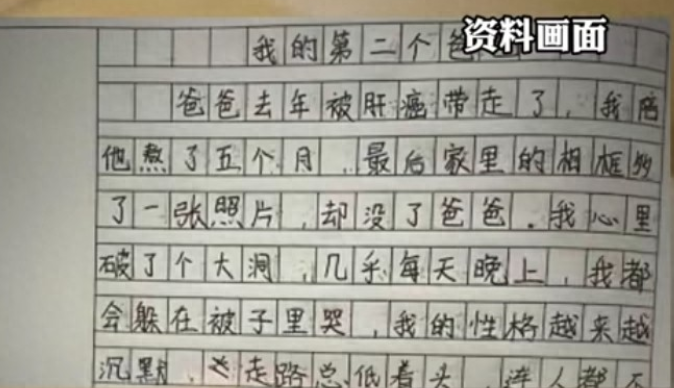 资料画面
我的第二个爸
爸爸去年被肝癌带走了，我陪
他熬了五个月，最后家里的相框多
了一张照片，却没了爸爸。我心里
破了个大洞，几乎每天晚上，我都
会躲在被子里哭，我的性格越来越
沉默，走路总低着头，连人都不